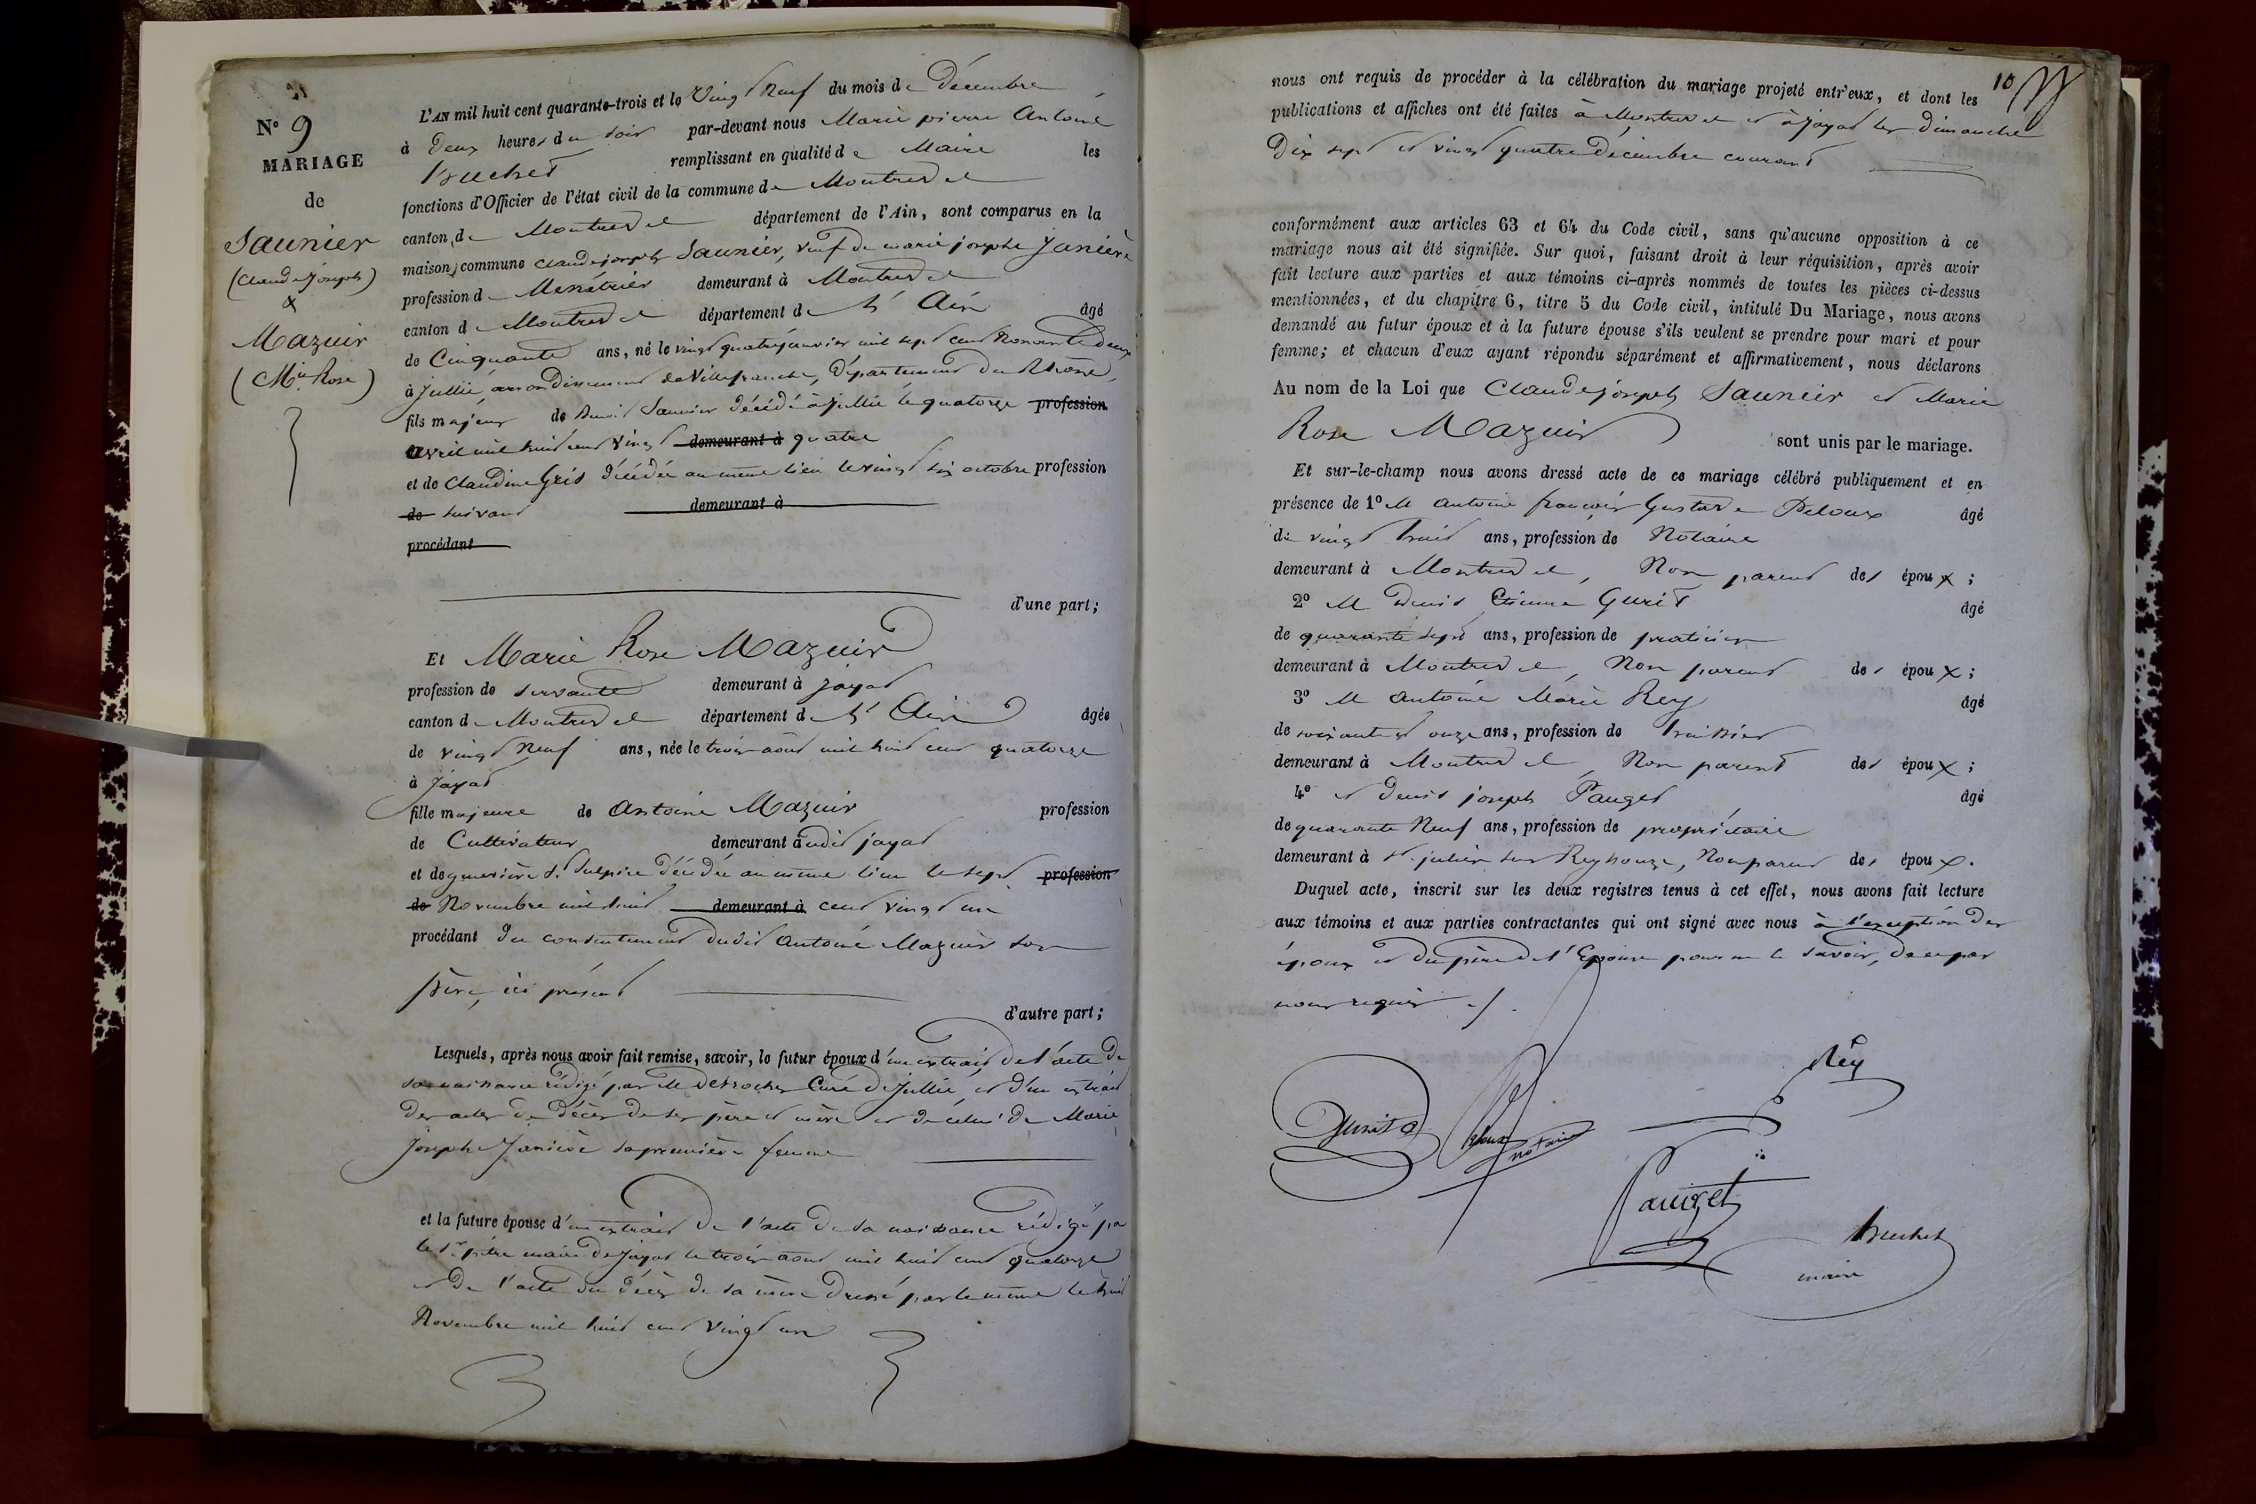 N° 9
MARIAGE
de
Saunier
(Claude joseph)
&
Mazuir
(Mie Rose)
L'AN mil huit cent quarante-trois et le Vingt Neuf du mois de Décembre
à Deux heures du soir par-devant nous Marie pierre Antoine
remplissant en qualité de Maire les
fonctions d'Officier de l'état civil de la commune de Montrevel
canton de Montrevel département de l'Ain, sont comparus en la
maison commune Claude joseph Saunier, veuf de marie josephe Janière
profession de Menétrier demeurant à Montrevel
canton de Montrevel département de l'Ain âgé
de Cinquante ans, né le vingt quatre janvier mil sept cent Nonante deux
à Jullié, arrondissement de Villefranche, Département du Rhône,
fils majeur de Saunier décédé à Jullié le quatorze profession
avril mil huit cent vingt demeurant à quatre
et de Claudine Gris décédée au même lieu le vingt six octobre profession
de suivant demeurant à
procédant
d'une part;
Et Marie Rose Mazuir
profession de servante demeurant à Jayat
canton de Montrevel département de l'Ain âgée
de vingt Neuf ans, née le trois août mil huit cent quatorze
à Jayat
fille majeure de Antoine Mazuir profession
de Cultivateur demeurant à udit jayat
et de genevière St Sulpice décédée au même lieu le sept profession
de Novembre mil huit demeurant à cent vingt un
procédant du consentement dudit Antoine Mazuir son
père, ici présent
d'autre part;
Lesquels, après nous avoir fait remise, savoir, le futur époux d'un extrait de l'acte de
sa naissance rédigé par M Desroches Curé de Jullié, et d'un extrait
des actes de décès de ses père et mère et de celui de Marie
Josephe Janière sa première femme
et la future épouse d'un extrait de l'acte de sa naissance rédigé par
le Sr maire de Jayat le trois août mil huit cent quatorze
et de l'acte du décès de sa mère dressé par le même le huit
Novembre mil huit cent vingt un
10
nous ont requis de procéder à la célébration du mariage projeté entr'eux, et dont les
publications et affiches ont été faites à Montrevel et à Jayat les Dimanche
Dix sept et vingt quatre décembre courant
conformément aux articles 63 et 64 du Code civil, sans qu'aucune opposition à ce
mariage nous ait été signifiée. Sur quoi, faisant droit à leur réquisition, après avoir
fait lecture aux parties et aux témoins ci-après nommés de toutes les pièces ci-dessus
mentionnées, et du chapitre 6, titre 5 du Code civil, intitulé Du Mariage, nous avons
demandé au futur époux et à la future épouse s'ils veulent se prendre pour mari et pour
femme; et chacun d'eux ayant répondu séparément et affirmativement, nous déclarons
Au nom de la Loi que Claude joseph Saunier et Marie
Rose Mazuir sont unis par le mariage.
Et sur-le-champ nous avons dressé acte de ce mariage célébré publiquement et en
présence de 1° M antoine françois Gustave Peloux âgé
de vingt huit ans, profession de Notaire
demeurant à Montrevel, Non parent des époux;
2° M Denis Etienne Gurit âgé
de quarante sept ans, profession de praticien
demeurant à Montrevel, Non parent des époux;
3° M antoine Marie Rey âgé
de soixante et onze ans, profession de huissier
demeurant à Montrevel, Non parent des époux;
4° et Denis joseph Pauget âgé
de quarante Neuf ans, profession de propriétaire
demeurant à St julien sur Reyssouze, Non parent des époux.
Duquel acte, inscrit sur les deux registres tenus à cet effet, nous avons fait lecture
aux témoins et aux parties contractantes qui ont signé avec nous à l'exception des
époux et du père de l'Epouse pour ne le savoir, de ce par
nous requis ./.
Rey
Gurit
Peloux
notaire
Pauget
maire